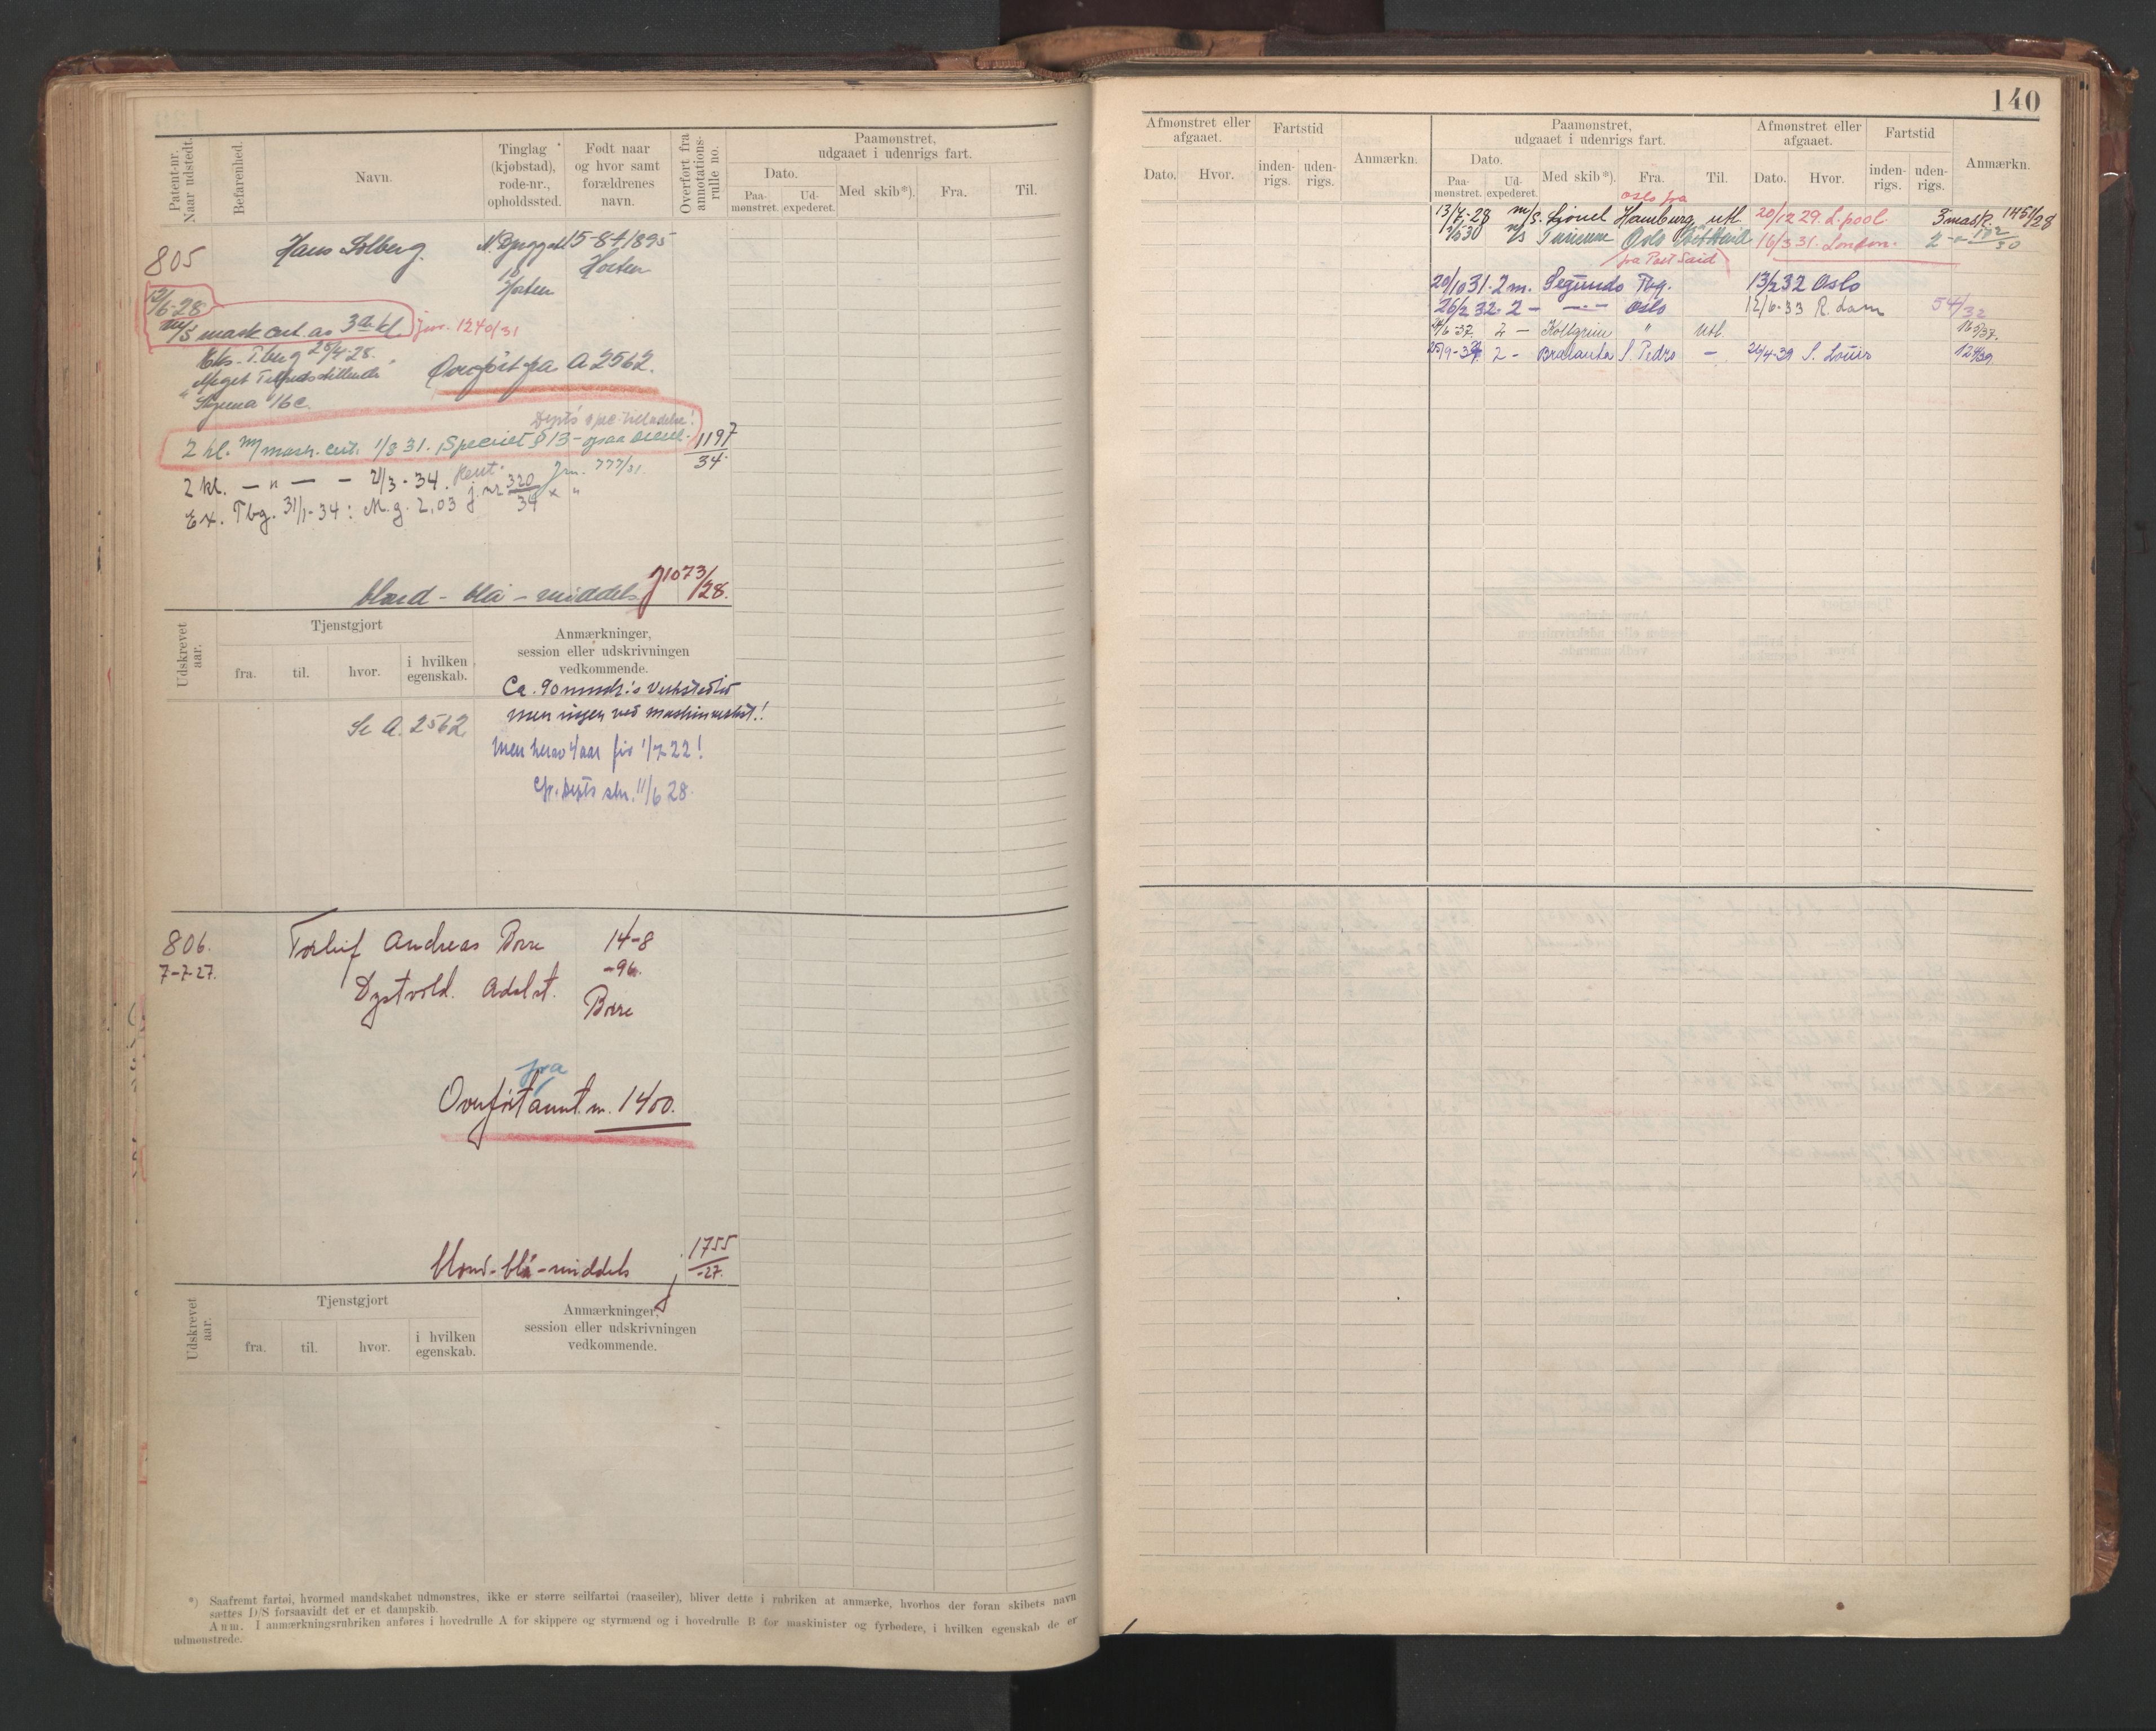 140
Patent-nr. Naar udstedt.
Befarenhed.
Navn.
Tinglag (kjøbstad), rode-nr., opholdssted.
Født naar og hvor samt forældrenes navn.
Overført fra annotations-rulle no.
Paamønstret, udgaaet i udenrigs fart.
Dato.
Paa-mønstret.
Ud-expederet.
Med skib*).
Fra.
Til.
Afmønstret eller afgaaet.
Dato.
Hvor.
Fartstid
inden-rigs.
uden-rigs.
Anmærkn.
Paamønstret, udgaaet i udenrigs fart.
Dato.
Paa-mønstret.
Ud-expederet.
Med skib*).
Fra.
Til.
Afmønstret eller afgaaet.
Dato.
Hvor.
Fartstid
inden-rigs.
uden-rigs.
Anmærkn.
805
Hans Solberg.
15-8-1895
Horten
18
Horten
12/6-28
m/s mask cert. as 3die kl. Jnr. 1240/31
Eks. Tbg 28/4-28.
Meget Tilfredsstillende
16 c.
Overført fra A 2562.
Depts spec. tilladelse!
2 kl. m/mask. cert. 1/8 31. Specielt § 13 - 1197/34.
2 kl. — " — — 21/3-34. Jnr. 777/31.
Ex. Tbg. 31/1-34: M.g. 2,03 j. nr 320/34
blond - blå - middels J 1073/28.
Udskrevet aar.
Tjenstgjort
fra.
til.
hvor.
i hvilken egenskab.
Anmærkninger, session eller udskrivningen vedkommende.
Se A. 2562
Ca. 90 verkstedtid
men ingen ved
Men herav 4 aar før 1/7-22!
Cfr. Depts skr. 11/6 28.
13/7-28 m/s. Lionel Hamburg utl. 20/12 29. L.pool 3 mask. 1451/28
oslo fra
30 m/s Oslo 16/3 31. London. 2 — 102/30
fra Port Said
20/10 31. 2 m. Segundo Tbg. 13/2 32 Oslo
26/2 32. 2 — — " — Oslo 12/6-33 R.dam 54/32
2 — Kollgrim " Utl.
25/9-37. 2 - Bralanta S. Pedro — 24/4-39 S. Louis 124/39
806.
7-7-27.
Torleif Andreas Borre
Dystvold. Adelst.
14-8
-96.
Borre
fra
Overført annt. nr. 1400.
blond-blå-middels j 1755/-27.
Udskrevet aar.
Tjenstgjort
fra.
til.
hvor.
i hvilken egenskab.
Anmærkninger, session eller udskrivningen vedkommende.
*) Saafremt fartøi, hvormed mandskabet udmønstres, ikke er større seilfartøi (raaseiler), bliver dette i rubriken at anmærke, hvorhos der foran skibets navn
sættes D/S forsaavidt det er et dampskib.
Anm. I anmærkningsrubriken anføres i hovedrulle A for skippere og styrmænd og i hovedrulle B for maskinister og fyrbødere, i hvilken egenskab de er
udmønstrede.